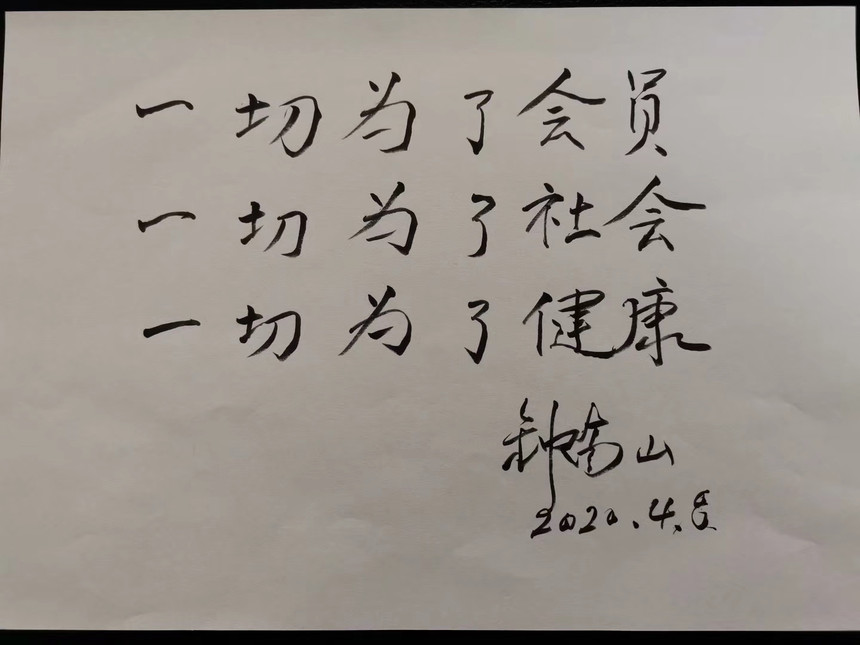 一切为了会员
一切为了社会
一切为了健康
钟南山
2020.4.8